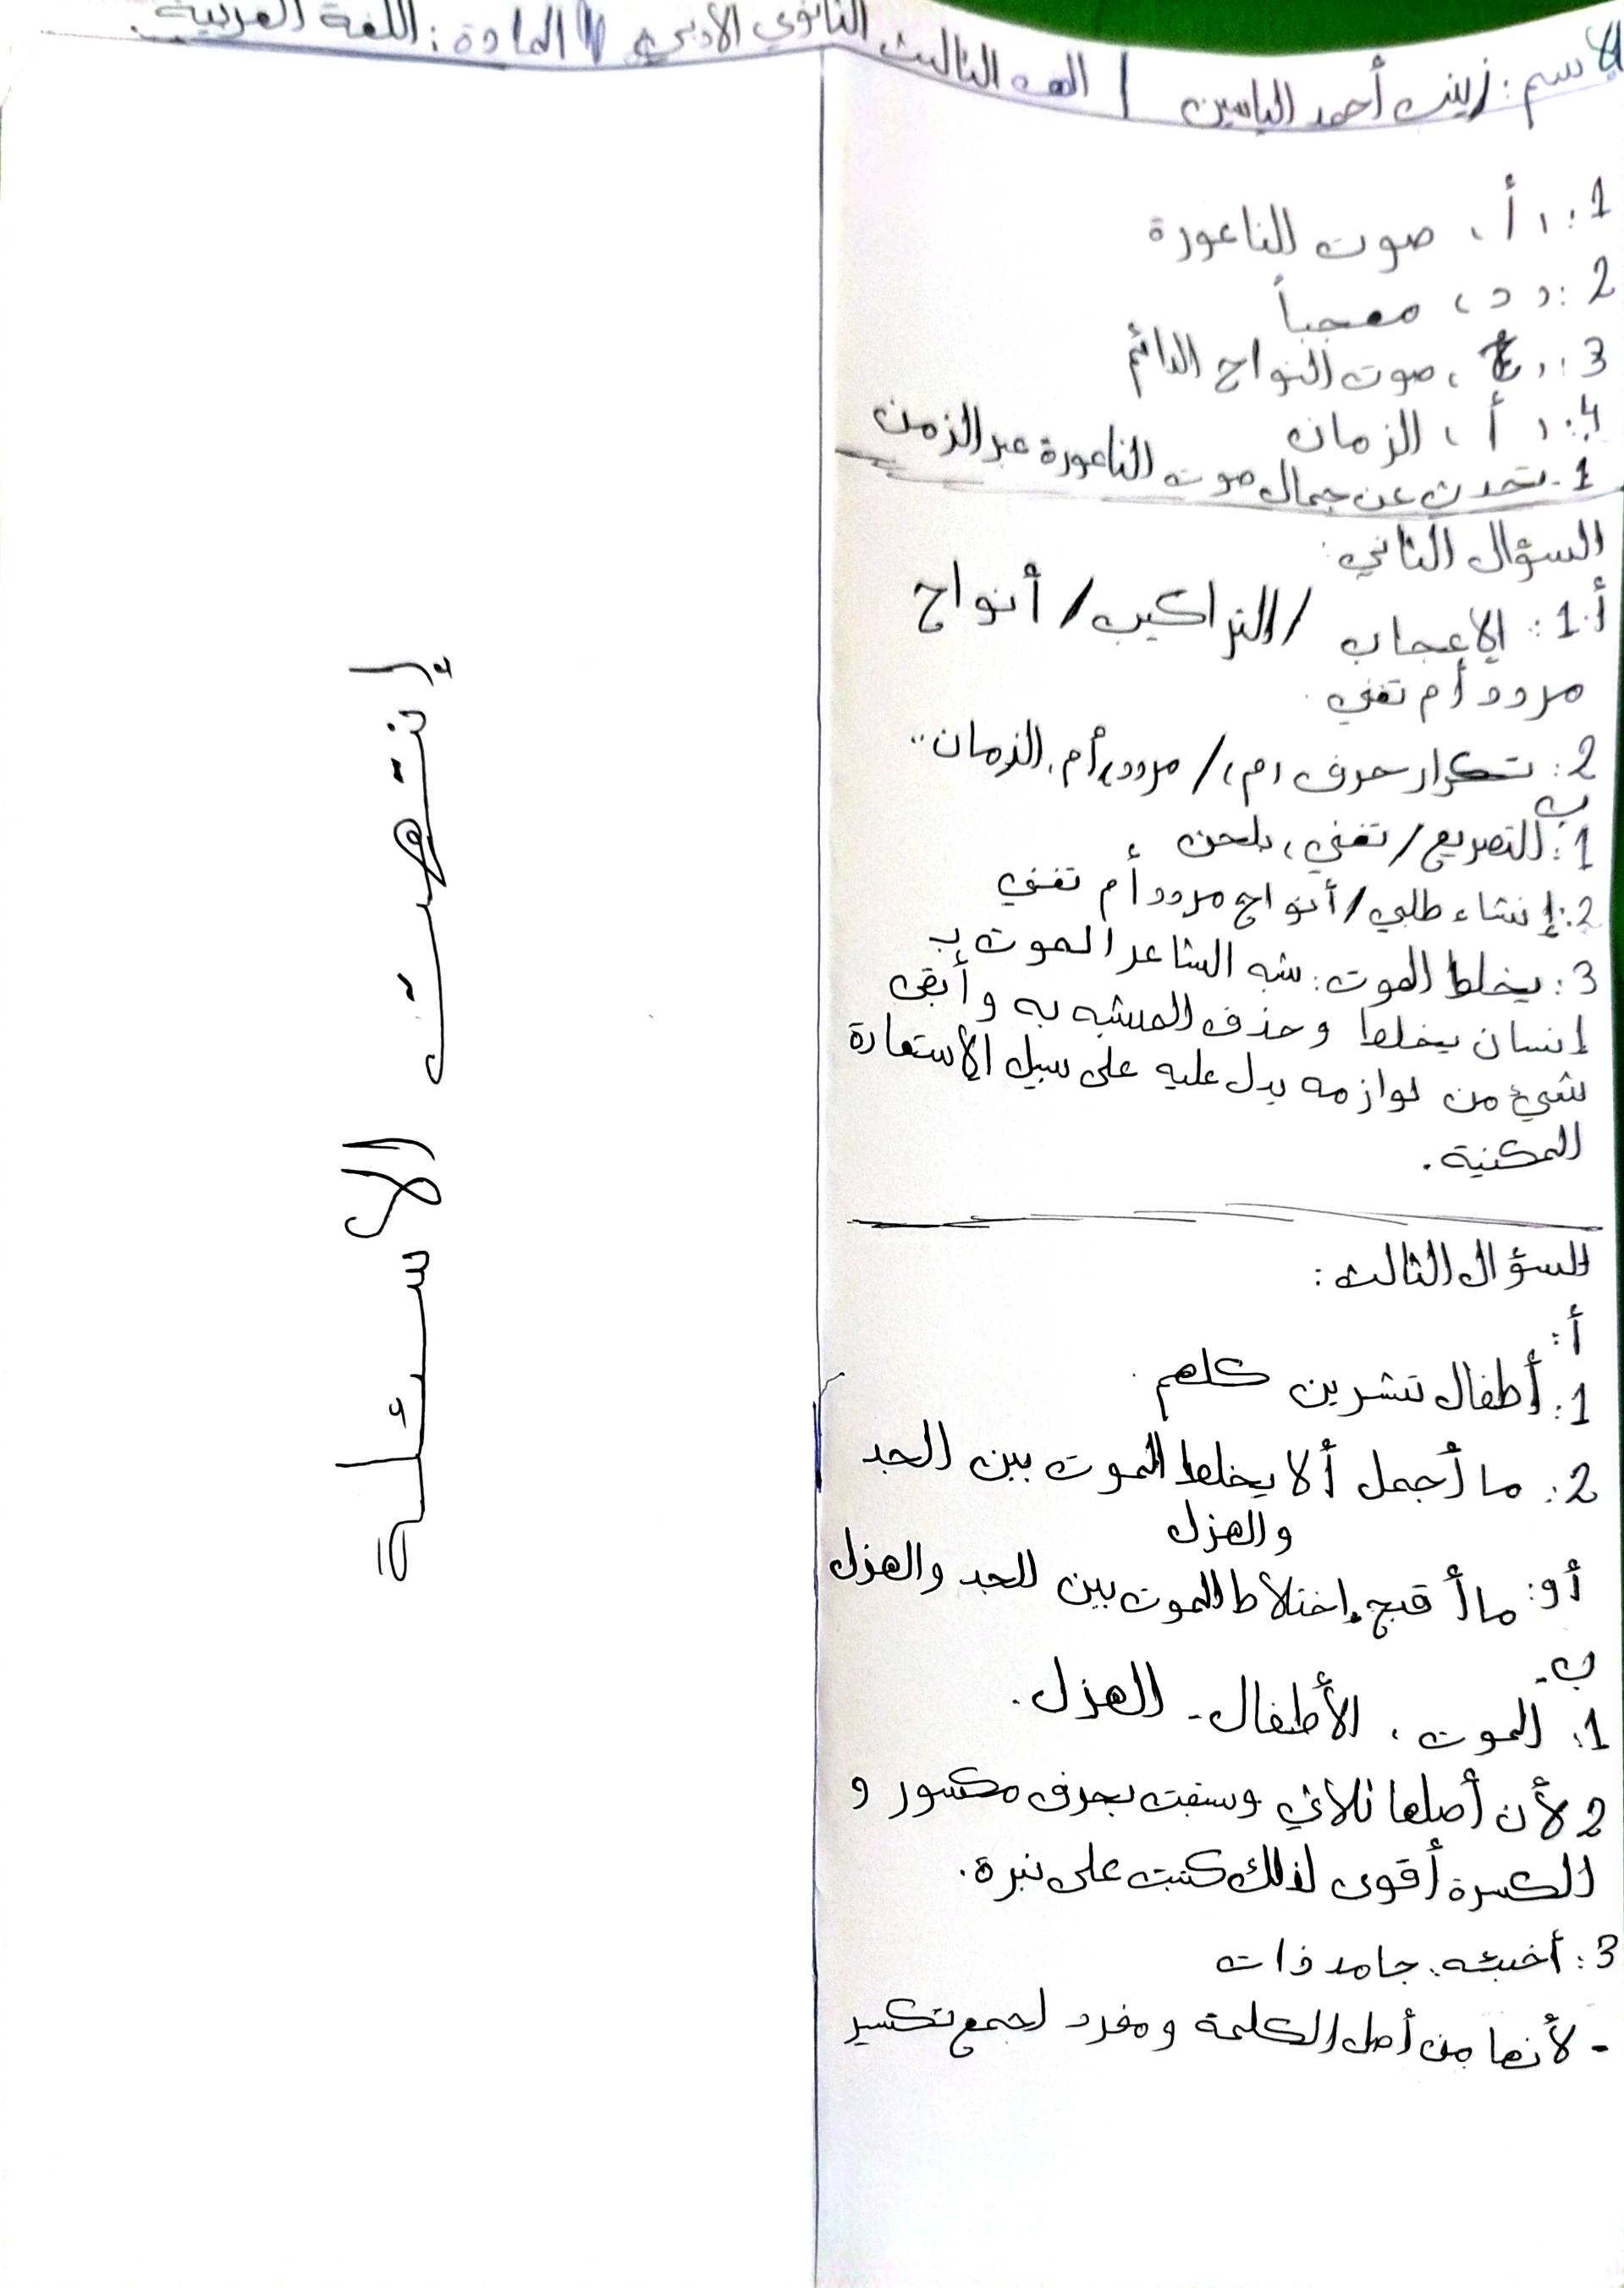 الاسم: زينب أحمد الياسين / الصف الثالث الثانوي الأدبي // المادة: اللغة العربية.
1: (أ) صوت الناعورة
2: (د) معجباً
3: (ج) صوت النواح الدائم
4: (أ) الزمان
1- تحدث عن جمال صوت الناعورة عبر الزمن
السؤال الثاني:
أ. 1: الإعجاب / التراكيب / أنواح
مردد أم تغني.
2: تكرار حرف (م) / مردد، أم، الزمان..
ب
1: التصريع / تغني، بلحن
2: إنشاء طلبي / أنواح مردد أم تغني
3: يخلط الموت: شبه الشاعر الموت بـ
إنسان يخلط وحذف المشبه به وأبقى
شيئ من لوازمه يدل عليه على سبيل الإستعارة
المكنية.
السؤال الثالث:
أ:
1: أطفال تشرين كلهم.
2: ما أجمل ألا يخلط الموت بين الجد
والهزل
أو: ما أقبح إختلاط الموت بين الجد والهزل
ب-
1: الموت، الأطفال - الهزل.
2 لأن أصلها ثلاثي وسبقت بحرف مكسور و
الكسرة أقوى لذلك كتبت على نبرة.
3: أخبئه: جامد ذات
- لأنها من أصل الكلمة ومفرد لجمع تكسير
إنتهت الاسئلة